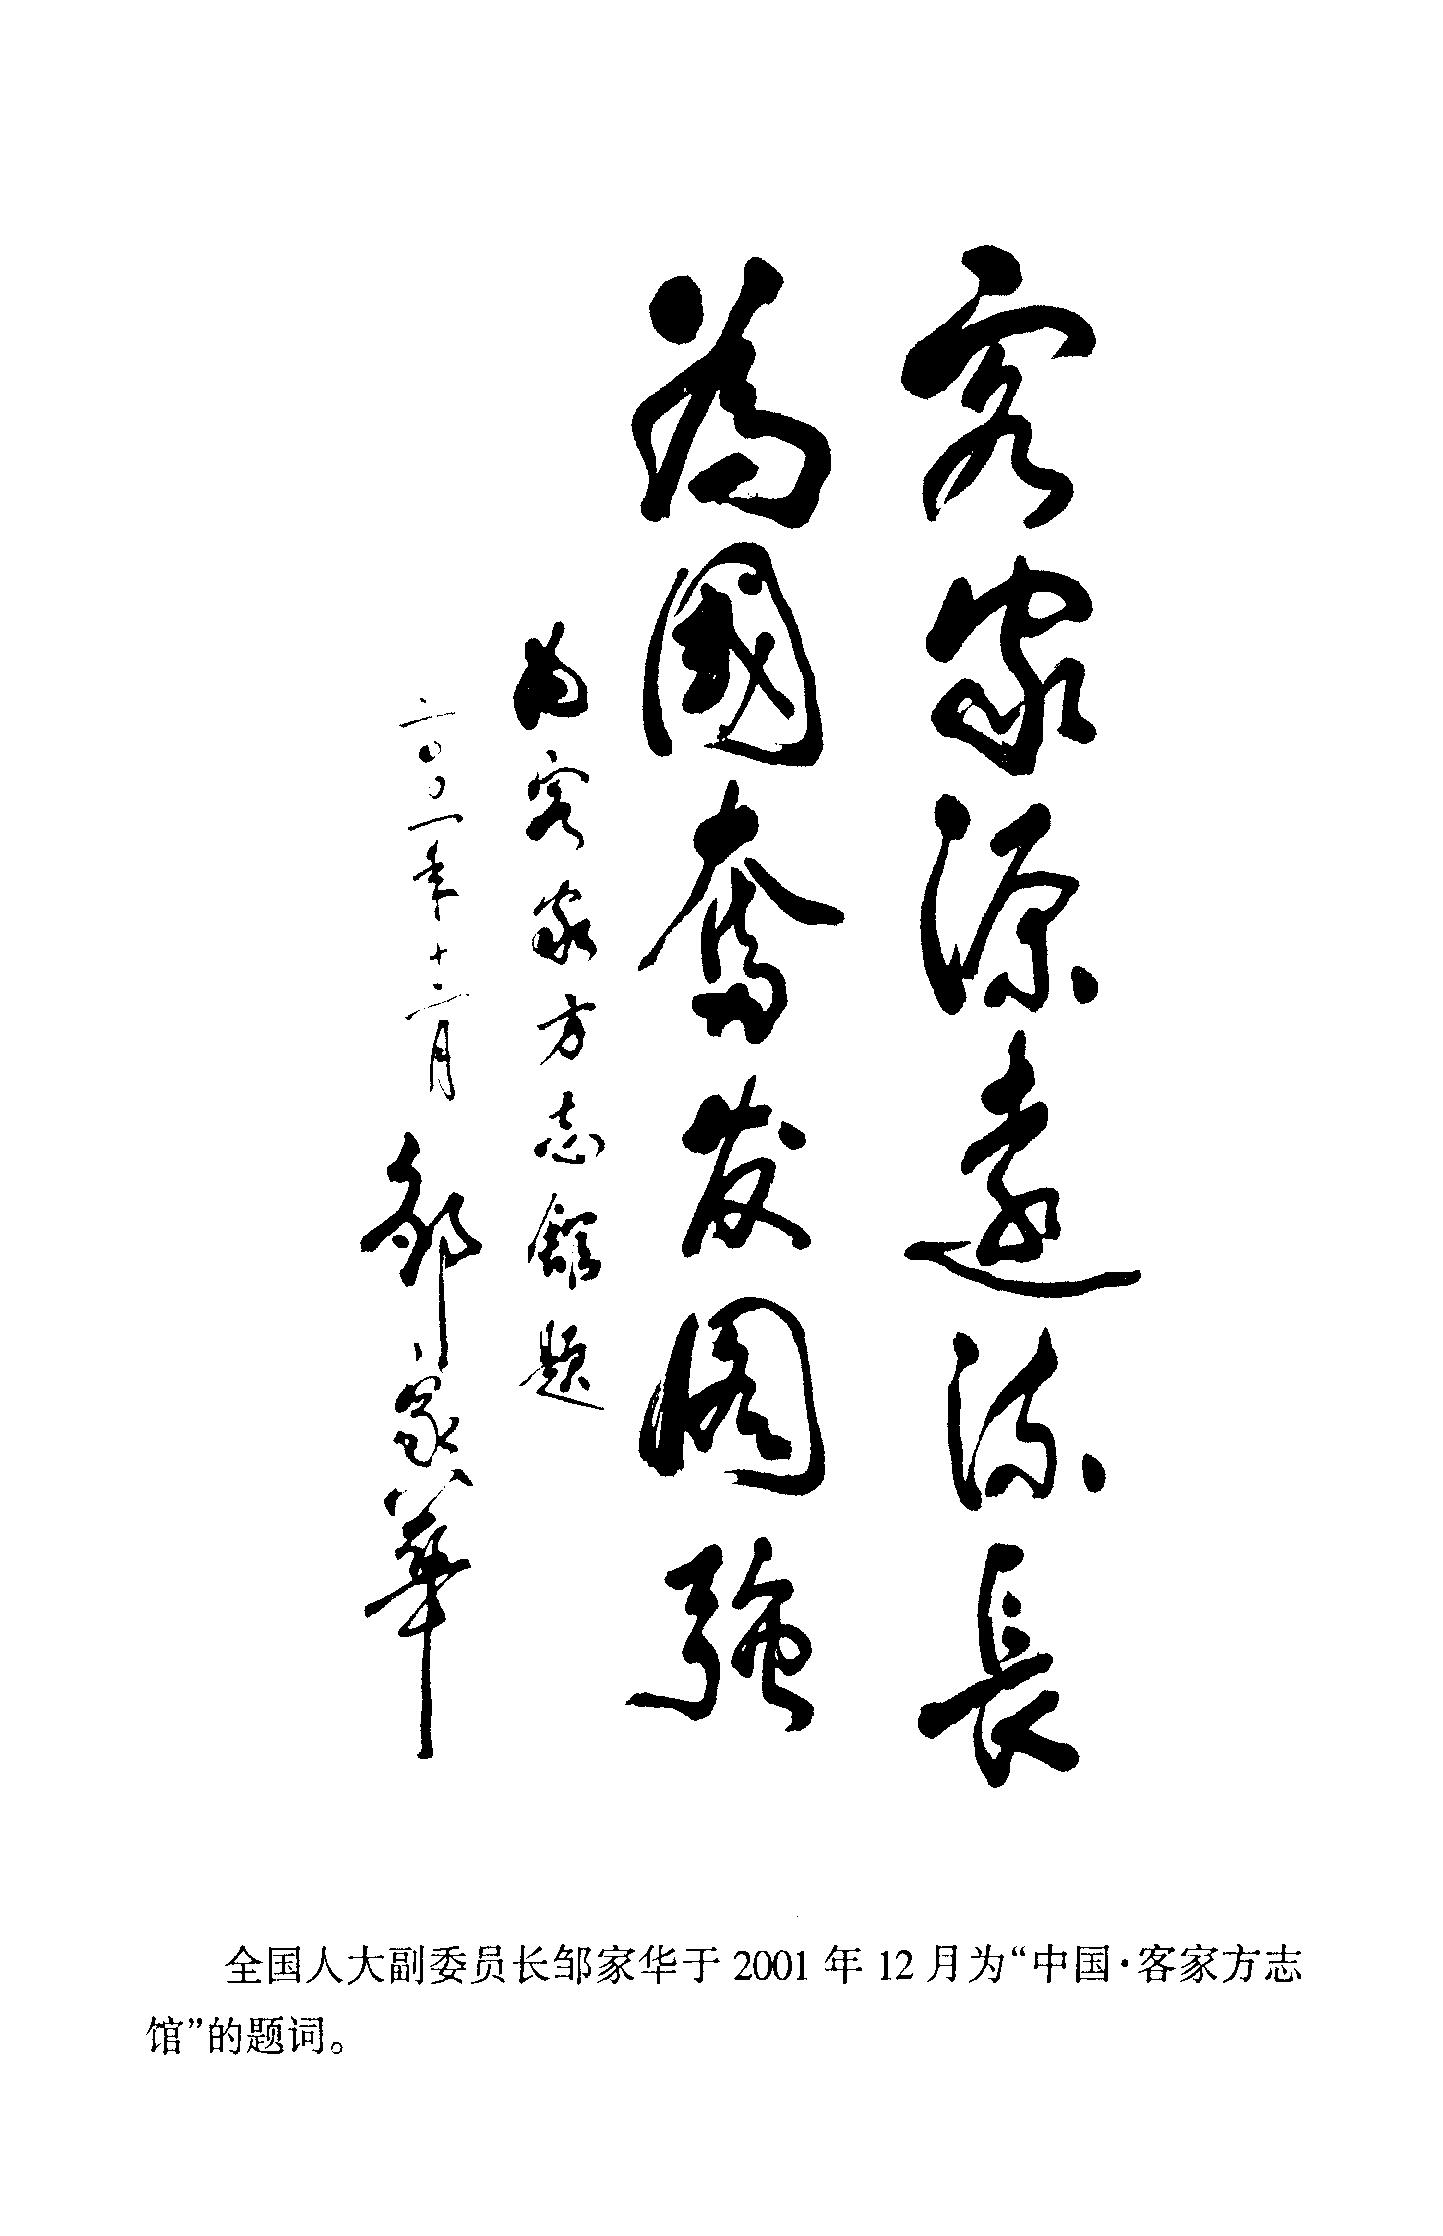 客家源遠流長
為國奮发图強
为客家方志館題
二〇〇一年十二月 鄒家華
全国人大副委员长邹家华于2001年12月为“中国·客家方志
馆”的题词。